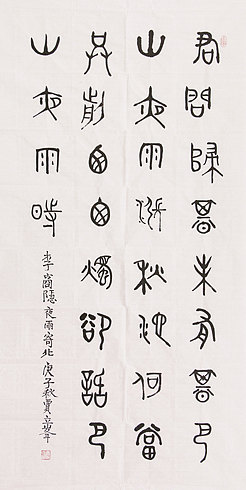 君問歸期未有期巴
山夜雨漲秋池何當
共剪西窗燭卻話巴
山夜雨時
李商隱夜雨寄北 庚子秋賈立